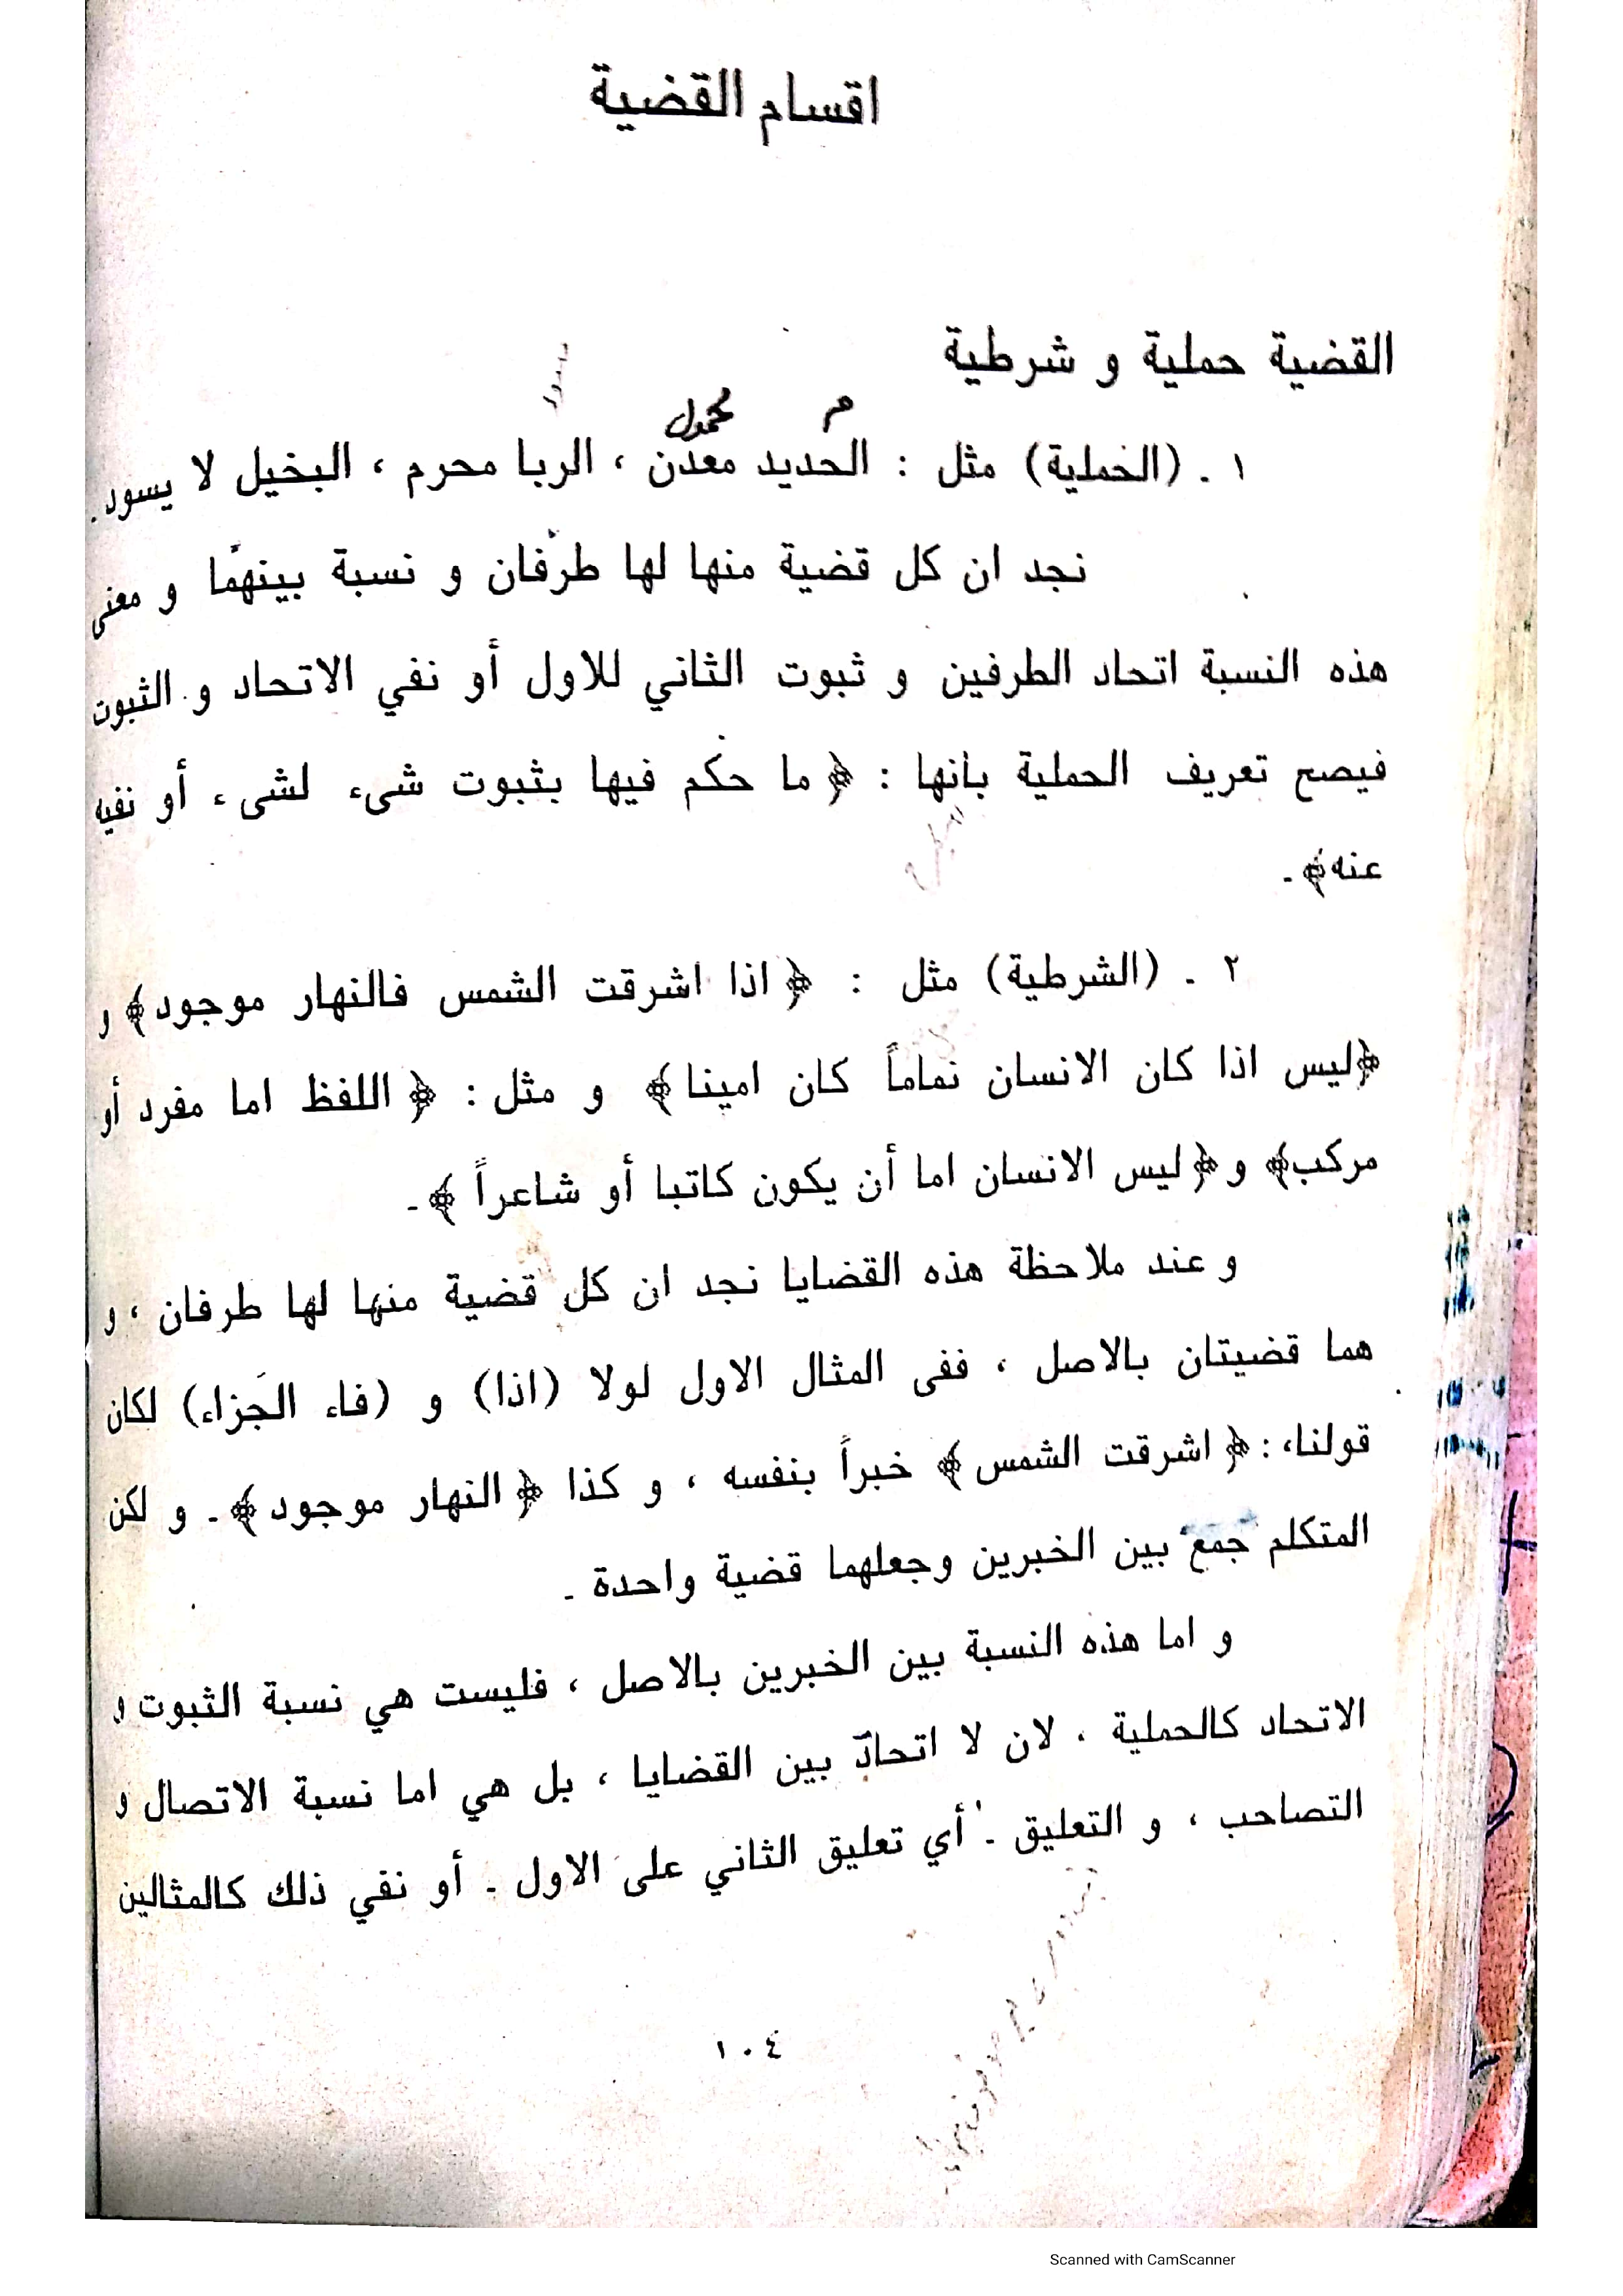 اقسام القضية
القضية حملية و شرطية
م محمول
١ ـ (الحملية) مثل : الحديد معدن ، الربا محرم ، البخيل لا يسود .
نجد ان كل قضية منها لها طرفان و نسبة بينهما و معنى
هذه النسبة اتحاد الطرفين و ثبوت الثاني للاول أو نفي الاتحاد و الثبوت
فيصح تعريف الحملية بأنها : ﴿ ما حكم فيها بثبوت شىء لشىء أو نفيه
عنه﴾ ـ
٢ ـ (الشرطية) مثل : ﴿ اذا اشرقت الشمس فالنهار موجود﴾ و
﴿ليس اذا كان الانسان نماماً كان امينا﴾ و مثل : ﴿ اللفظ اما مفرد أو
مركب﴾ و ﴿ليس الانسان اما أن يكون كاتبا أو شاعراً ﴾ ـ
و عند ملاحظة هذه القضايا نجد ان كل قضية منها لها طرفان ، و
هما قضيتان بالاصل ، ففى المثال الاول لولا (اذا) و (فاء الجَزاء) لكان
قولنا، : ﴿ اشرقت الشمس ﴾ خبراً بنفسه ، و كذا ﴿ النهار موجود ﴾ ـ و لكن
المتكلم جمع بين الخبرين وجعلهما قضية واحدة ـ
و اما هذه النسبة بين الخبرين بالاصل ، فليست هي نسبة الثبوت و
الاتحاد كالحملية ، لان لا اتحاد بين القضايا ، بل هي اما نسبة الاتصال و
التصاحب ، و التعليق ـ أي تعليق الثاني على الاول ـ أو نفي ذلك كالمثالين
١٠٤
Scanned with CamScanner